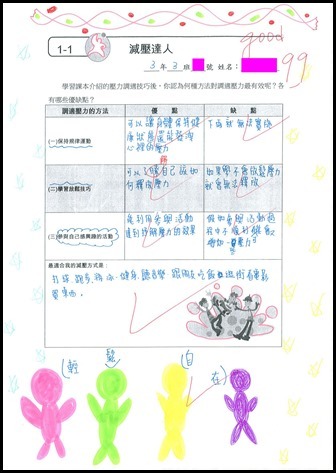 1-1 減壓達人
good
3 年 3 班 號 姓名：
99
學習課本介紹的壓力調適技巧後，你認為何種方法對調適壓力最有效呢？各
有哪些優缺點？
調適壓力的方法 優 點 缺 點
(一)保持規律運動
可以讓身體保持健
心裡的壓力
下雨就無法實施
(二)學習放鬆技巧
可以了解自己該如
何釋放壓力
如果學不會放鬆壓力
就會無法釋放
(三)參與自己感興趣的活動
能利用參與活動
達到紓解壓力的效果
假如參與活動過
程中不順利就會
增加一些壓力
最適合我的減壓方式是：
打球、跑步、游泳、健身、聽音樂 跟朋友吃飯、逛街看電影
買東西。
輕 鬆 自 在